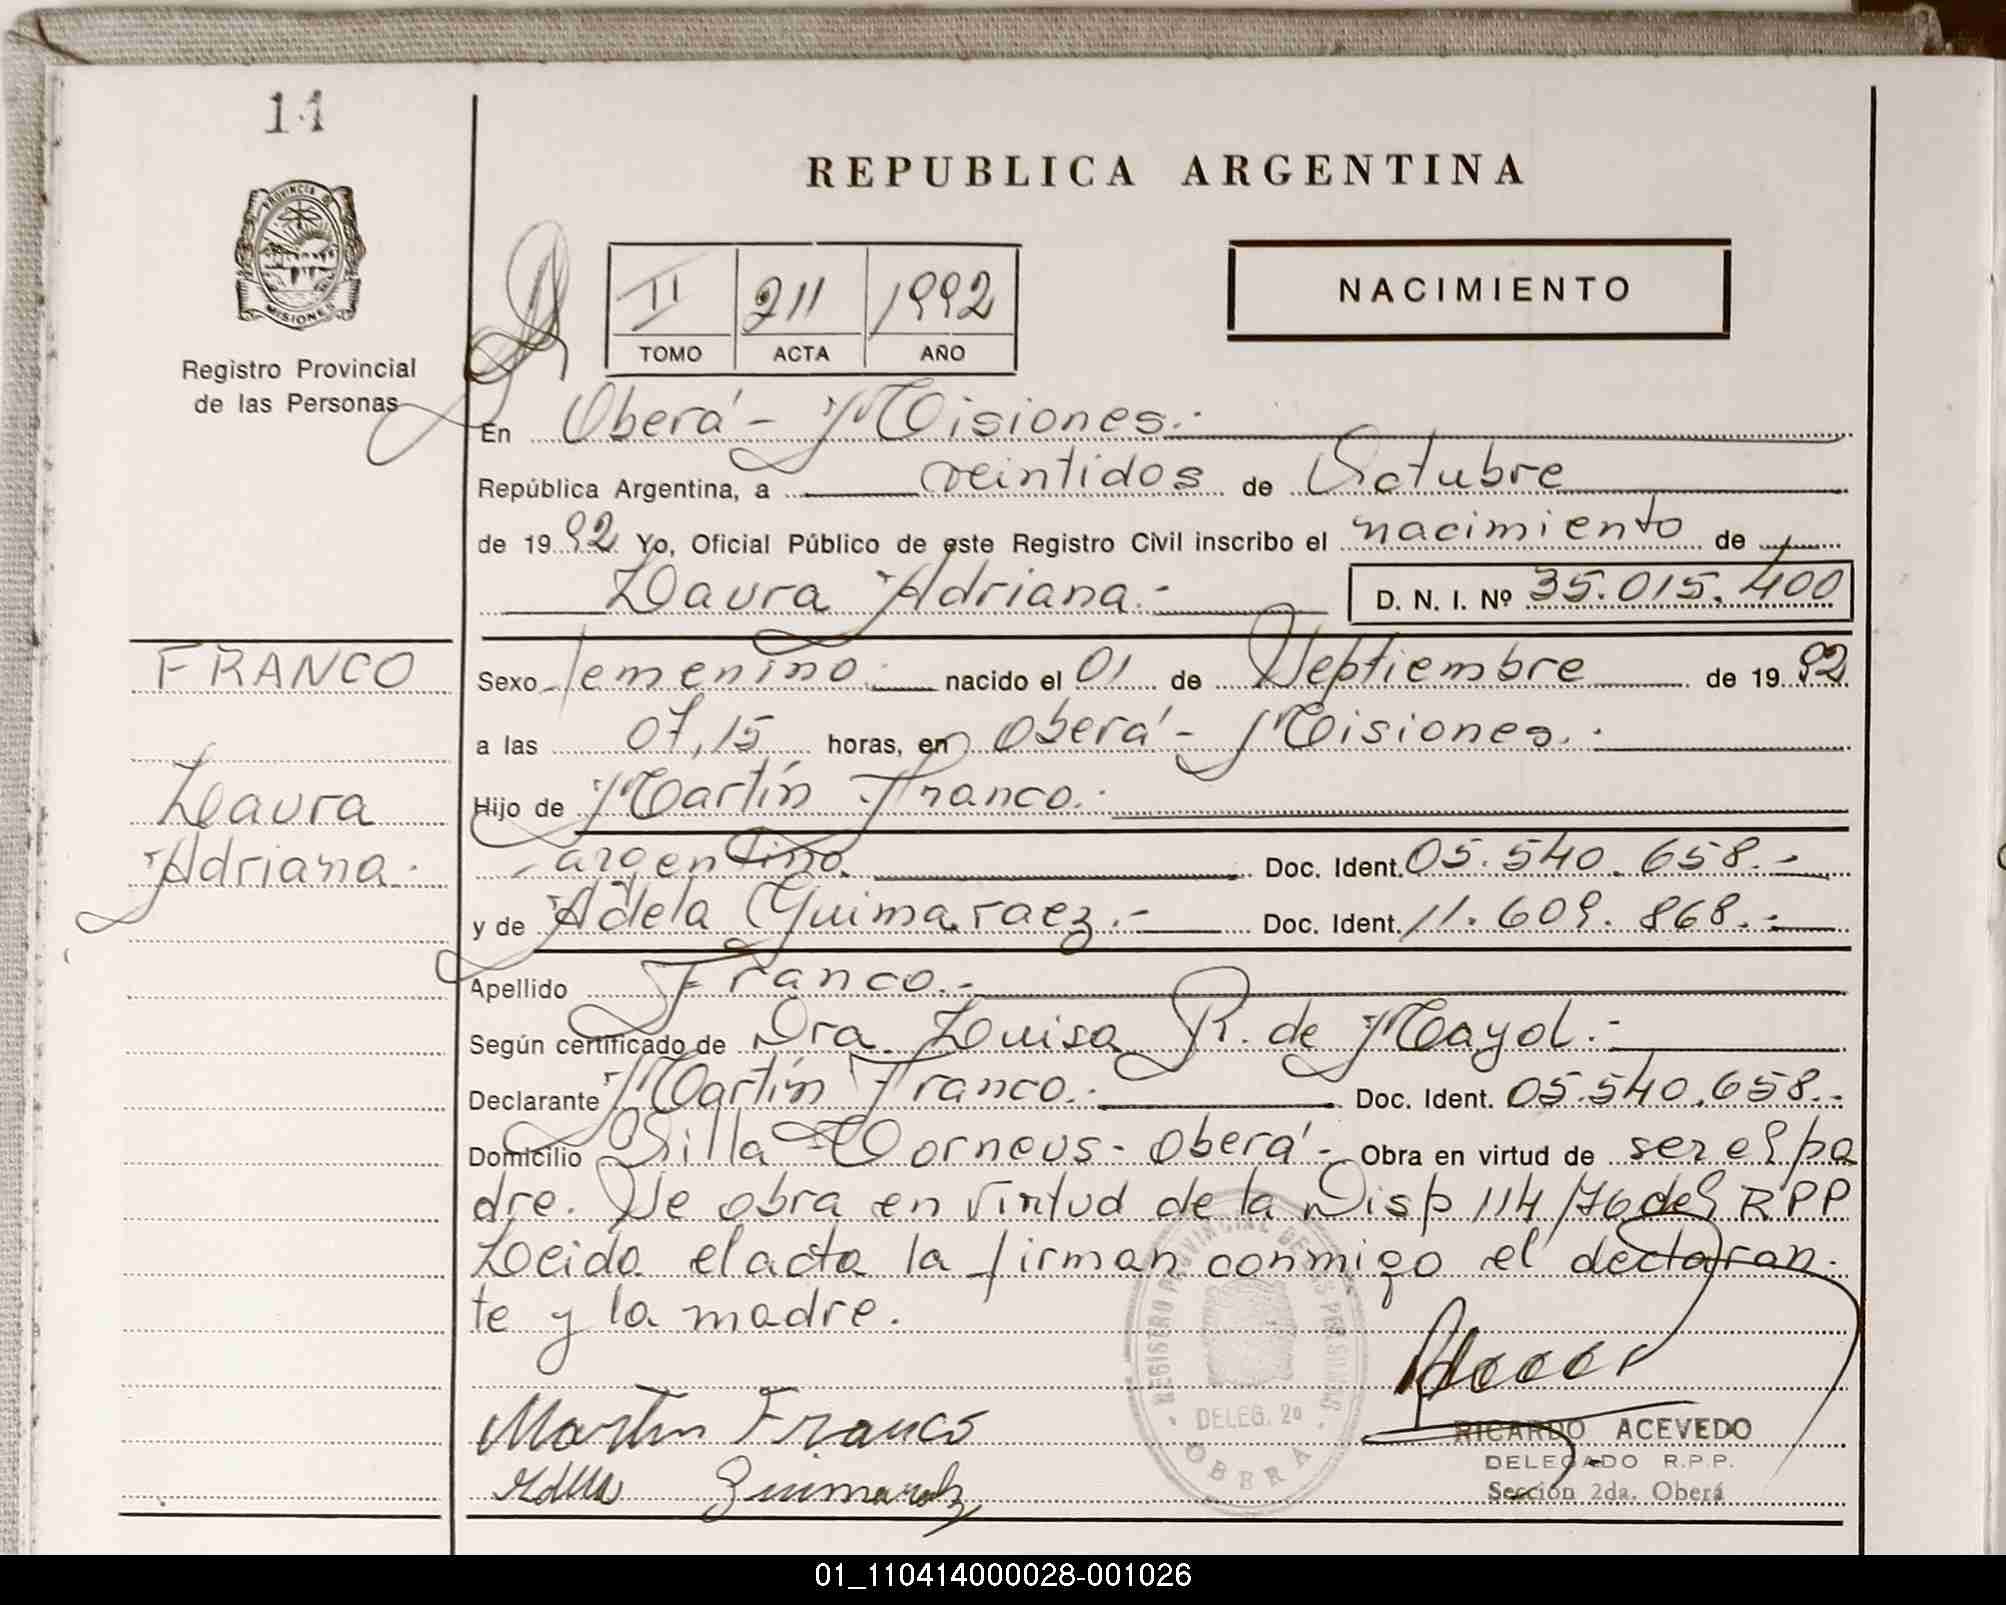 14
REPUBLICA ARGENTINA
PROVINCIA DE
MISIONES
II 211 1992
TOMO ACTA AÑO
NACIMIENTO
Registro Provincial
de las Personas
En Oberá - Misiones.-
República Argentina, a veintidos de Octubre
de 1992 Yo, Oficial Público de este Registro Civil inscribo el nacimiento de
Laura Adriana.- D. N. I. Nº 35.015.400
FRANCO
Sexo femenino.- nacido el 01 de Septiembre de 1992
a las 07,15 horas, en Oberá - Misiones.-
Laura
Hijo de Martín Franco.-
Adriana.
argentino. Doc. Ident. 05.540.658.-
y de Adela Guimaraez.- Doc. Ident. 11.609.868.-
Apellido Franco.-
Según certificado de Dra. Luisa R. de Mayol.-
Declarante Martín Franco.- Doc. Ident. 05.540.658.-
Domicilio Villa Torneus - Oberá - Obra en virtud de ser el pa
dre. Se obra en virtud de la Disp 114/76 del RPP
Leida el acta la firman conmigo el declaran-
te y la madre.
REGISTRO PROVINCIAL DE LAS PERSONAS
DELEG. 2a
OBERA
Martin Franco
RICARDO ACEVEDO
DELEGADO R.P.P.
Sección 2da. Oberá
Guimaraez
01_110414000028-001026